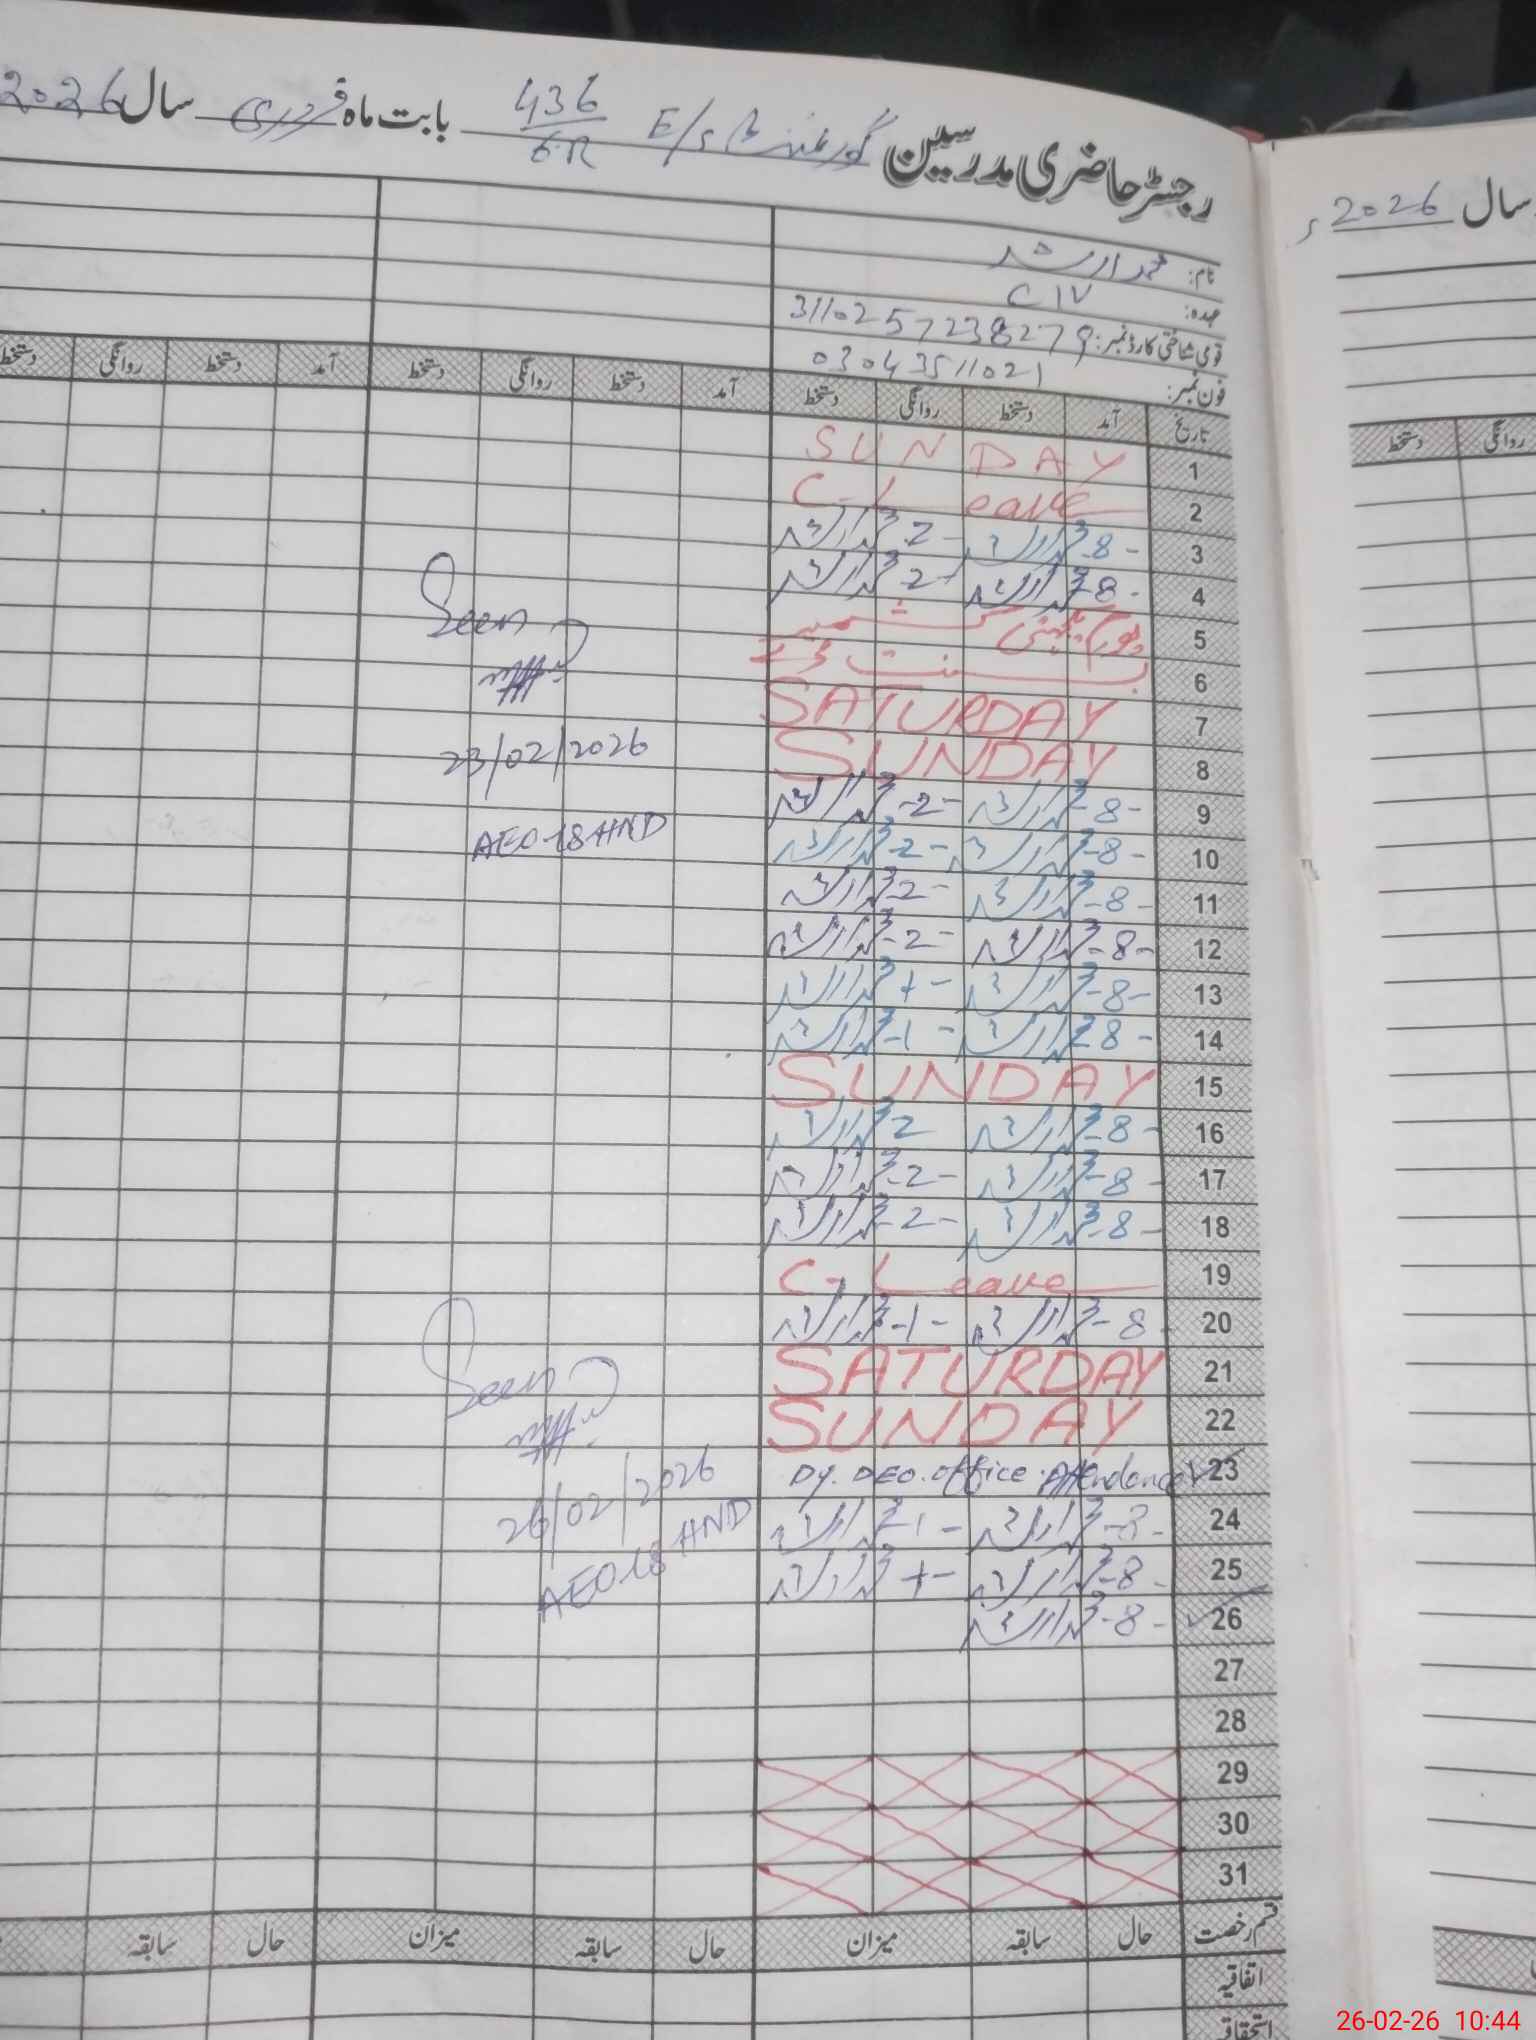 رجسٹر حاضری مدرسین گورنمنٹ E/S 436/6R بابت ماہ فروری سال 2026
سال 2026ء
نام: محمد ارشد
عہدہ: C IV
قومی شناختی کارڈ نمبر: 3110257238279
فون نمبر: 03043511021
تاریخ آمد دستخط روانگی دستخط آمد دستخط روانگی دستخط آمد دستخط روانگی دستخط
روانگی دستخط
1 SUNDAY
2 C-Leave
3 -8- محمد ارشد -2- محمد ارشد
4 -8- محمد ارشد -2- محمد ارشد
5 یوم یکجہتی کشمیر
6 بسنت
7 SATURDAY
8 SUNDAY
9 -8- محمد ارشد -2- محمد ارشد
10 -8- محمد ارشد -2- محمد ارشد
11 -8- محمد ارشد -2- محمد ارشد
12 -8- محمد ارشد -2- محمد ارشد
13 -8- محمد ارشد -1- محمد ارشد
14 -8- محمد ارشد -1- محمد ارشد
15 SUNDAY
16 -8- محمد ارشد 2 محمد ارشد
17 -8- محمد ارشد -2- محمد ارشد
18 -8- محمد ارشد -2- محمد ارشد
19 C-Leave
20 -8- محمد ارشد -1- محمد ارشد
21 SATURDAY
22 SUNDAY
23 Dy. DEO. office. Attendance
24 -8- محمد ارشد -1- محمد ارشد
25 -8- محمد ارشد -1- محمد ارشد
26 -8- محمد ارشد
27
28
29
30
31
Seen
23/02/2026
AEO-18 HND
Seen
26/02/2026
AEO-18 HND
قسم رخصت حال سابقہ میزان حال سابقہ میزان حال سابقہ
اتفاقیہ
استحقاقیہ
26-02-26 10:44